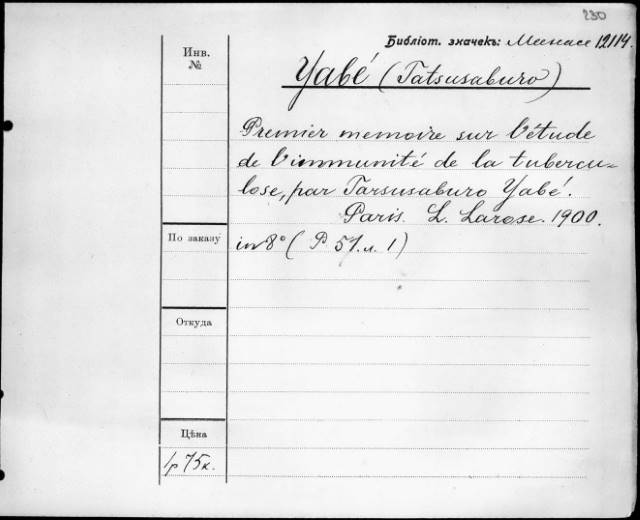 230
Библіот. значекъ: 12114.
Инв.
№
Yabé (Tatsusaburo)
Premier memoire sur l'étude
de l'immunité de la tubercu=
lose, par Tarsusaburo Yabé.
Paris. L. Larose. 1900.
По заказу
in 8° (P. 51. л. 1)
Откуда
Цѣна
1р 75к.